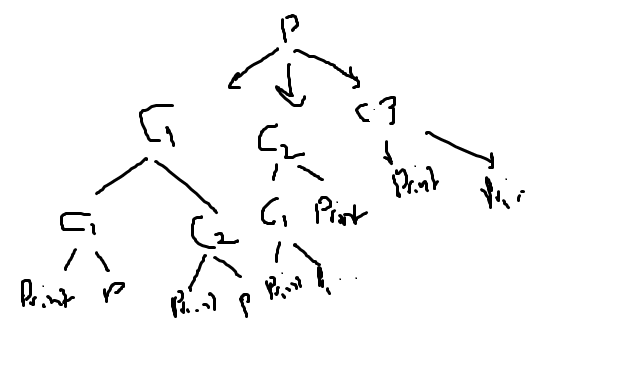 P
C1 C2 C3
C1 C2 C1 Print Print
Print P Print P Print